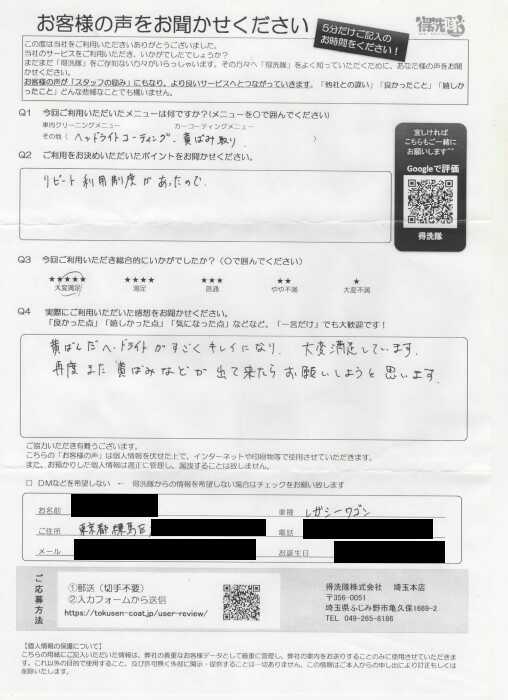 お客様の声をお聞かせください
5分だけご記入の
お時間をください!
得洗隊
この度は当社をご利用いただきありがとうございました。
当社のサービスをご利用いただき、いかがでしたでしょうか?
まだまだ「得洗隊」をご存知ない方がいらっしゃいます。その方々へ「得洗隊」をよく知っていただくために、あなた様の声をお聞
かせください。
お客様の声が「スタッフの励み」にもなり、より良いサービスへとつながっていきます。「他社との違い」「良かったこと」「嬉しか
ったこと」どんな些細なことでも構いません。
Q1 今回ご利用いただいたメニューは何ですか?(メニューを〇で囲んでください)
車内クリーニングメニュー カーコーティングメニュー
その他 ( ヘッドライトコーティング、黄ばみ取り )
宜しければ
こちらもご一緒に
お願いします^^
Googleで評価
得洗隊
Q2 ご利用をお決めいただいたポイントをお聞かせください。
リピート利用制度があったので、
Q3 今回ご利用いただき総合的にいかがでしたか?(〇で囲んでください)
★★★★★ ★★★★ ★★★ ★★ ★
大変満足 満足 普通 やや不満 大変不満
Q4 実際にご利用いただいた感想をお聞かせください。
「良かった点」「嬉しかった点」「気になった点」などなど。「一言だけ」でも大歓迎です!
黄ばんだヘッドライトがすごくキレイになり、大変満足しています。
再度また黄ばみなどが出て来たらお願いしようと思います。
ご協力いただき有難うございます。
こちらの「お客様の声」は個人情報を伏せた上で、インターネットや印刷物等で使用させていただきます。
また、お預かりした個人情報は適正に管理し、漏洩することは致しません。
□ DMなどを希望しない ← 得洗隊からの情報を希望しない場合はチェックをお願い致します
お名前 車種 レガシーワゴン
ご住所 東京都練馬区 電話
メール お誕生日
ご応募方法
①郵送(切手不要)
②入力フォームから送信
https://tokusen-coat.jp/user-review/
得洗隊株式会社 埼玉本店
〒356-0051
埼玉県ふじみ野市亀久保1669-2
TEL 049-265-8186
【個人情報の保護について】
こちらの用紙にご記入いただいた情報は、弊社の貴重なお客様データとして厳重に管理し、弊社の案内をお送りすることのみに使用させていただきま
す。これ以外の目的で使用すること、及び許可無く外部に開示・提供することは一切ありません。この情報はご本人からの申し出により訂正もしくは
削除いたします。